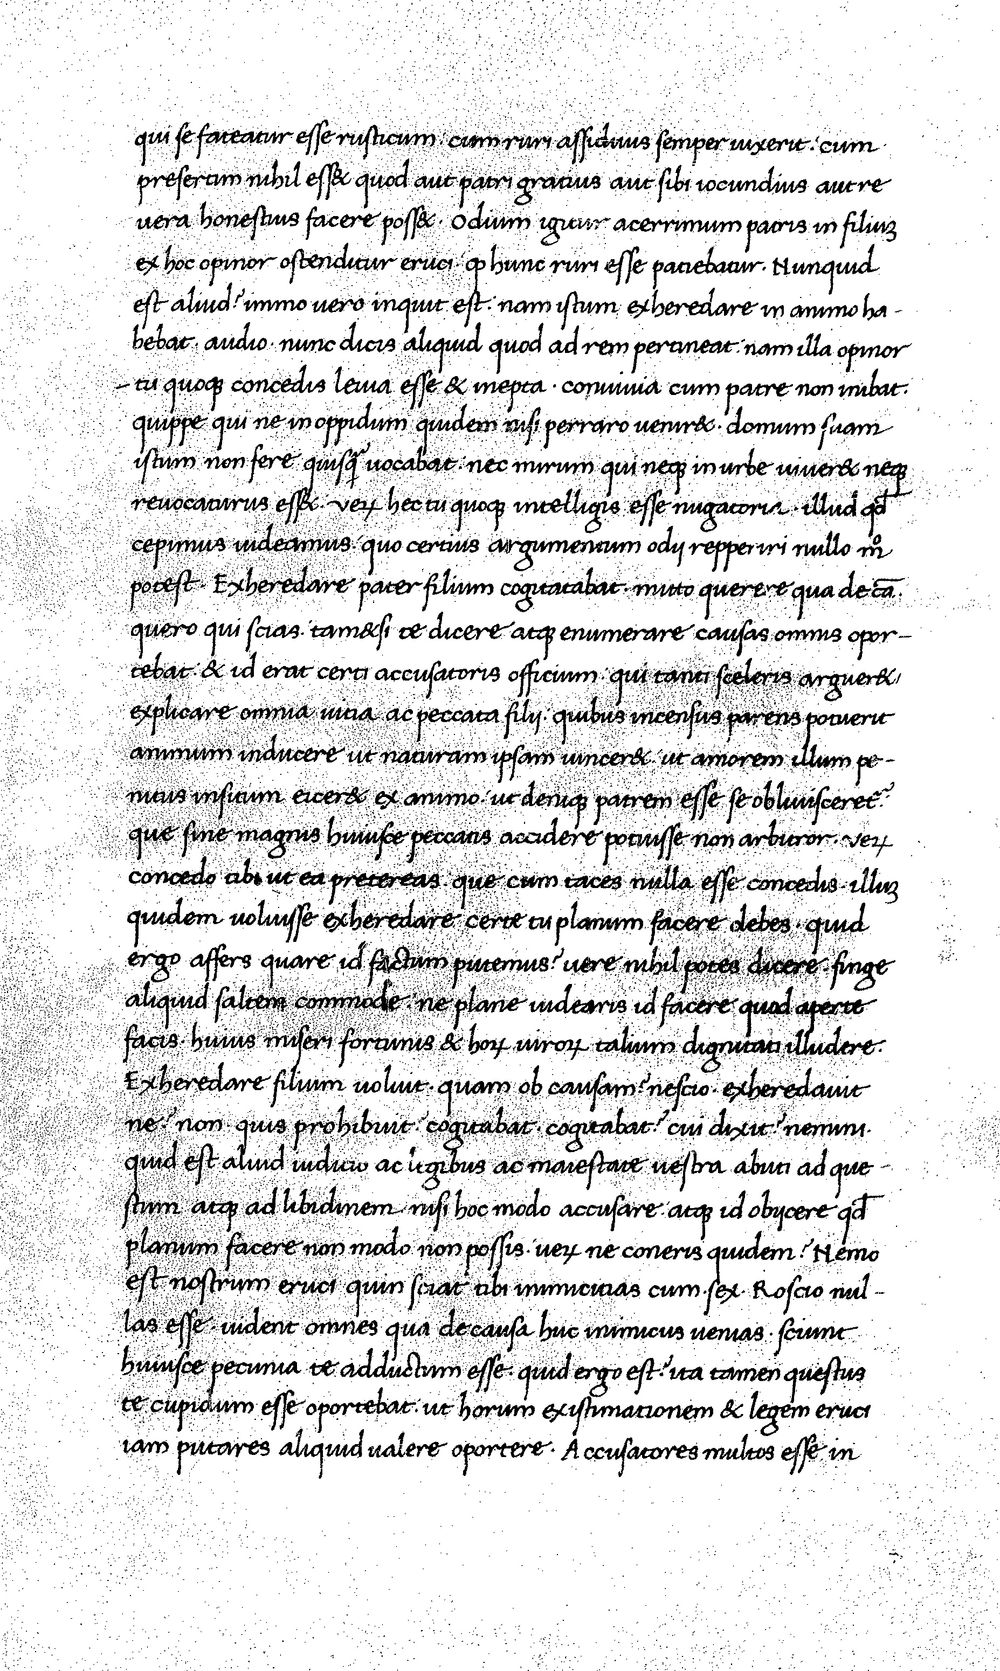 qui se fateatur esse rusticum. cum ruri assiduus semper uixerit. cum
presertim nihil ess& quod aut patri gratius aut sibi iocundius aut re
uera honestius facere poss&. Odium igitur acerrimum patris in filiuꝫ
ex hoc opinor ostenditur eruci. ꝙ hunc ruri esse patiebatur. Nunquid
est aliud? immo uero inquit est. nam istum exheredare in animo ha-
bebat. audio. nunc dicis aliquid quod ad rem pertineat. nam illa opinor
tu quoqꝫ concedis leuia esse & inepta. conuiuia cum patre non inibat.
quippe qui ne in oppidum quidem nisi perraro uenir&. domum suam
istum non fere quisq̃ uocabat. nec mirum qui neqꝫ in urbe uiuer& neqꝫ
reuocaturus ess&. veꝝ hec tu quoqꝫ intelligis esse nugatoria. illud qđ
cepimus uideamus. quo certius argumentum odij repperiri nullo m̊
potest. Exheredare pater filium cogitatabat. mitto querere qua de cā.
quero qui scias. tam&si te dicere atqꝫ enumerare causas omnis opor-
tebat. & id erat certi accusatoris officium. qui tanti sceleris arguer&
explicare omnia uitia ac peccata filij. quibus incensus parens potuerit
animum inducere ut naturam ipsam uincer&. ut amorem illum pe-
nitus insitum eicer& ex animo. ut deniqꝫ patrem esse se obliuisceret?
que sine magnis huiusce peccatis accidere potuisse non arbitror. veꝝ
concedo tibi ut ea pretereas. que cum taces nulla esse concedis. illuꝫ
quidem uoluisse exheredare certe tu planum facere debes. quid
ergo affers quare id factum putemus? uere nihil potes dicere. finge
aliquid saltem commode. ne plane uidearis id facere quod aperte
facis. huius miseri fortunis & hoꝝ uiroꝝ talium dignitati illudere.
Exheredare filium uoluit. quam ob causam? nescio. exheredauit
ne? non. quis prohibuit? cogitabat. cogitabat? cui dixit? nemini.
quid est aliud iudicio ac legibus ac maiestate uestra abuti ad que-
stum atqꝫ ad libidinem. nisi hoc modo accusare. atqꝫ id obijcere qđ
planum facere non modo non possis. ueꝝ ne coneris quidem? Nemo
est nostrum eruci quin sciat tibi inimicitias cum. sex. Roscio nul-
las esse. uident omnes qua de causa huic inimicus uenias. sciunt
huiusce pecunia te adductum esse. quid ergo est? ita tamen questus
te cupidum esse oportebat. ut horum existimationem & legem eruci
iam putares aliquid ualere oportere. Accusatores multos esse in